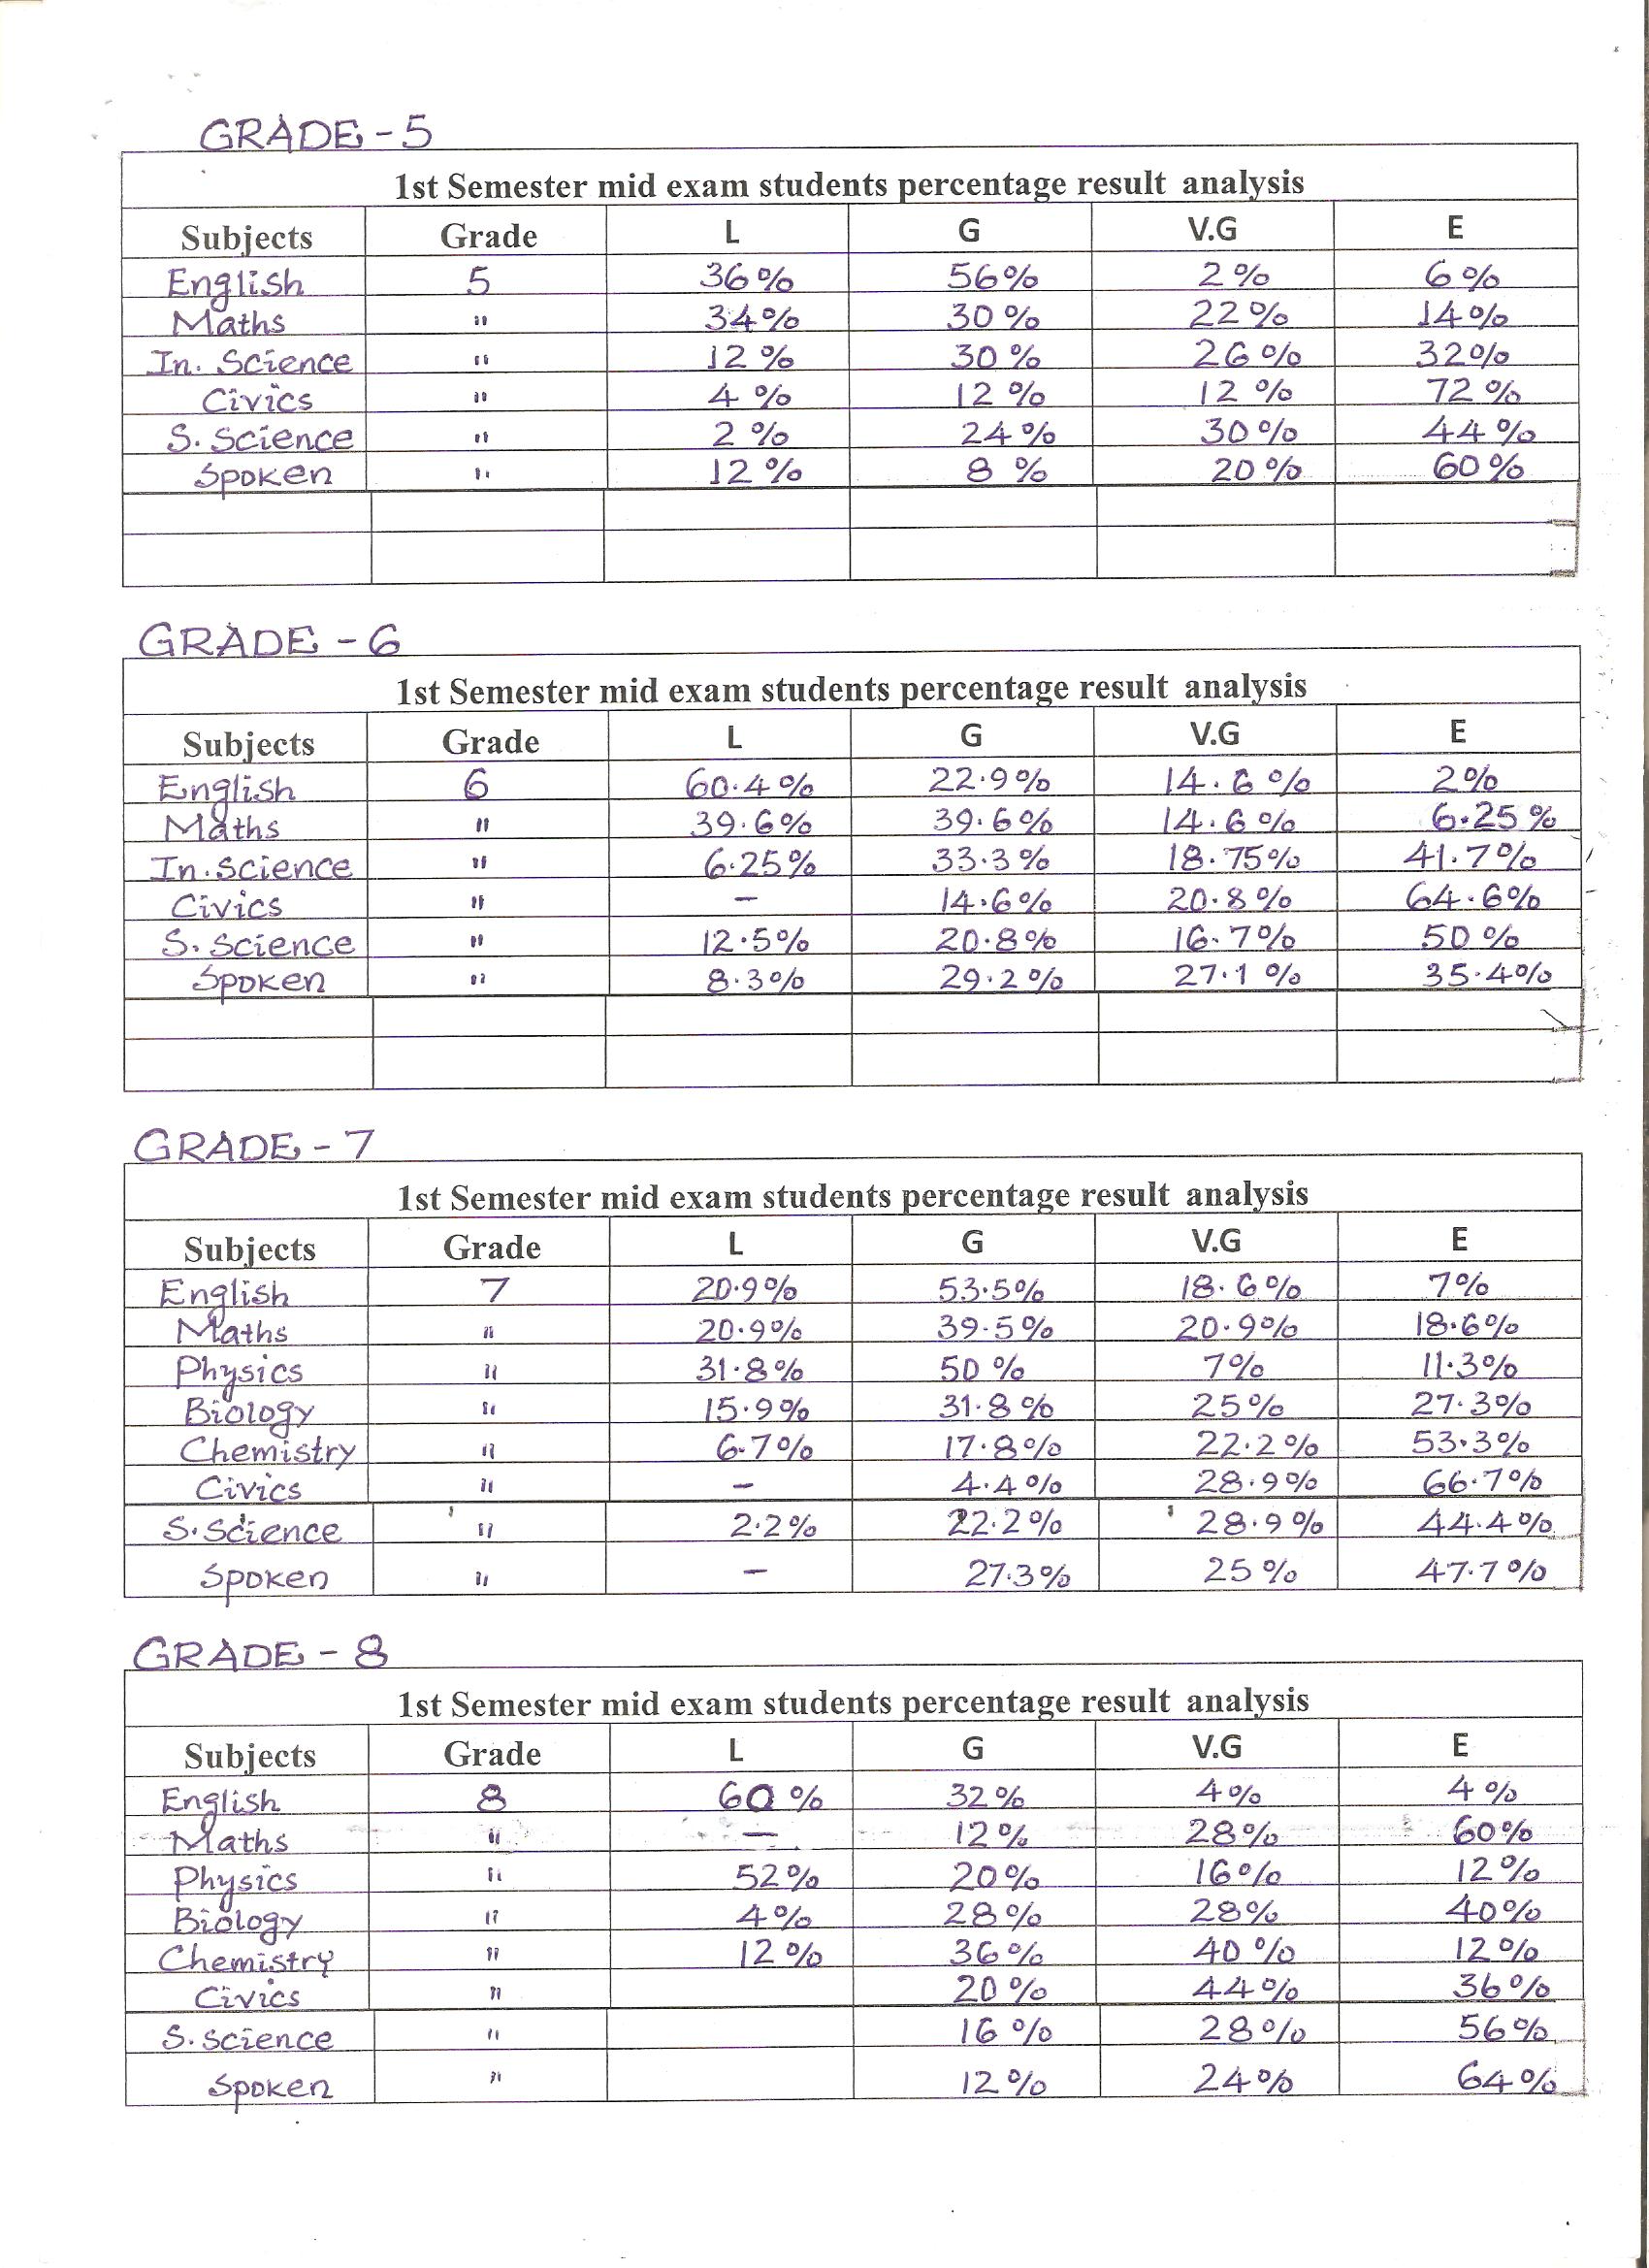 GRADE - 5
1st Semester mid exam students percentage result analysis
Subjects Grade L G V.G E
English 5 36% 56% 2% 6%
Maths " 34% 30% 22% 14%
In. Science " 12% 30% 26% 32%
Civics " 4% 12% 12% 72%
S. Science " 2% 24% 30% 44%
Spoken " 12% 8% 20% 60%
GRADE - 6
1st Semester mid exam students percentage result analysis
Subjects Grade L G V.G E
English 6 60.4% 22.9% 14.6% 2%
Maths " 39.6% 39.6% 14.6% 6.25%
In. Science " 6.25% 33.3% 18.75% 41.7%
Civics " - 14.6% 20.8% 64.6%
S. Science " 12.5% 20.8% 16.7% 50%
Spoken " 8.3% 29.2% 27.1% 35.4%
GRADE - 7
1st Semester mid exam students percentage result analysis
Subjects Grade L G V.G E
English 7 20.9% 53.5% 18.6% 7%
Maths " 20.9% 39.5% 20.9% 18.6%
Physics " 31.8% 50% 7% 11.3%
Biology " 15.9% 31.8% 25% 27.3%
Chemistry " 6.7% 17.8% 22.2% 53.3%
Civics " - 4.4% 28.9% 66.7%
S. Science " 2.2% 22.2% 28.9% 44.4%
Spoken " - 27.3% 25% 47.7%
GRADE - 8
1st Semester mid exam students percentage result analysis
Subjects Grade L G V.G E
English 8 60% 32% 4% 4%
Maths " - 12% 28% 60%
Physics " 52% 20% 16% 12%
Biology " 4% 28% 28% 40%
Chemistry " 12% 36% 40% 12%
Civics " 20% 44% 36%
S. Science " 16% 28% 56%
Spoken " 12% 24% 64%